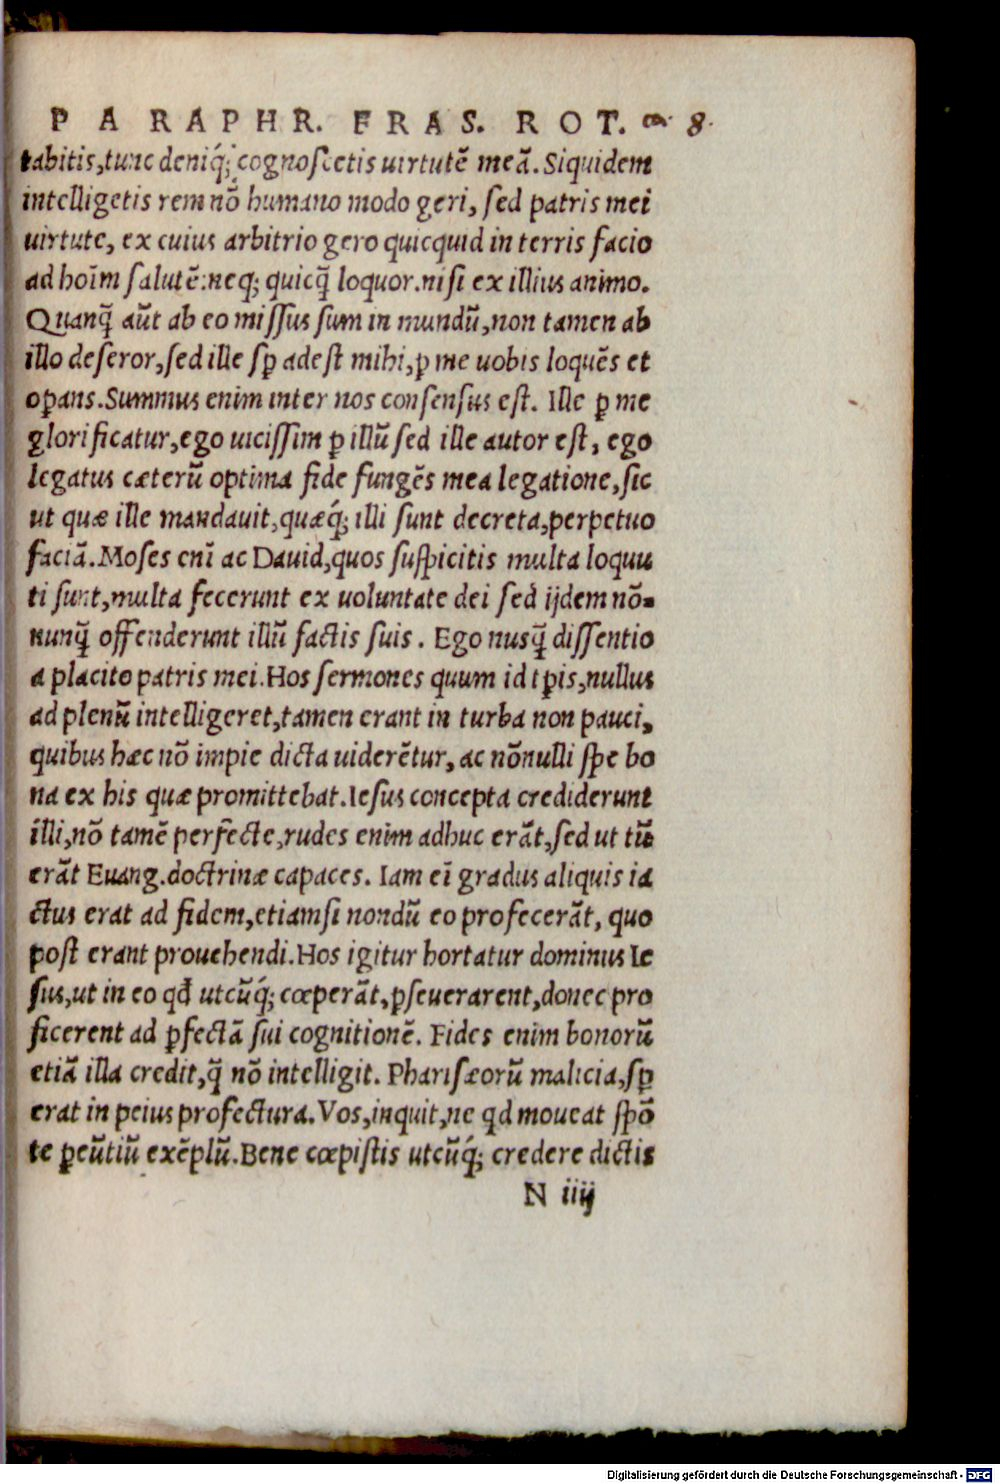 PARAPHR. ERAS. ROT. ca. 8.
tabitis,tunc deniq́; cognoscetis uirtutē meã. Siquidem
intelligetis rem nõ humano modo geri, sed patris mei
uirtute, ex cuius arbitrio gero quicquid in terris facio
ad hoīm salutē:neq; quicq̃ loquor.nisi ex illius animo.
Quanq̃ aũt ab eo missus sum in mundũ,non tamen ab
illo deseror,sed ille sp̱ adest mihi,p̱ me uobis loquẽs et
op̱ans.Summus enim inter nos consensus est. Ille p̱ me
glorificatur,ego uicissim p̱ illũ sed ille autor est, ego
legatus cæterũ optima fide fungẽs mea legatione,sic
ut quæ ille mandauit,quæq́; illi sunt decreta,perpetuo
faciã.Moses enī ac Dauid,quos suspicitis multa loquu
ti sunt,multa fecerunt ex uoluntate dei sed ijdem nõ-
nunq̃ offenderunt illũ factis suis. Ego nusq̃ dissentio
a placito patris mei.Hos sermones quum id tp̱is,nullus
ad plenũ intelligeret,tamen erant in turba non pauci,
quibus hæc nõ impie dicta uiderẽtur, ac nõnulli spe bo
na ex his quæ promittebat.Iesus concepta crediderunt
illi,nõ tamẽ perfecte,rudes enim adhuc erãt,sed ut tũ
erãt Euang.doctrinæ capaces. Iam eī gradus aliquis ia
ctus erat ad fidem,etiamsi nondũ eo profecerãt, quo
post erant prouehendi.Hos igitur hortatur dominus Ie
sus,ut in eo qđ utcũq́; cœperãt,p̱seuerarent,donec pro
ficerent ad p̱fectã sui cognitionẽ. Fides enim bonorũ
etiã illa credit,q̃ nõ intelligit. Pharisæorũ malicia,sp̱
erat in peius profectura.Vos,inquit,ne qd moueat spõ
te p̱eũtiũ exẽplũ.Bene cœpistis utcũq́; credere dictis
N iiij
Digitalisierung gefördert durch die Deutsche Forschungsgemeinschaft - DFG